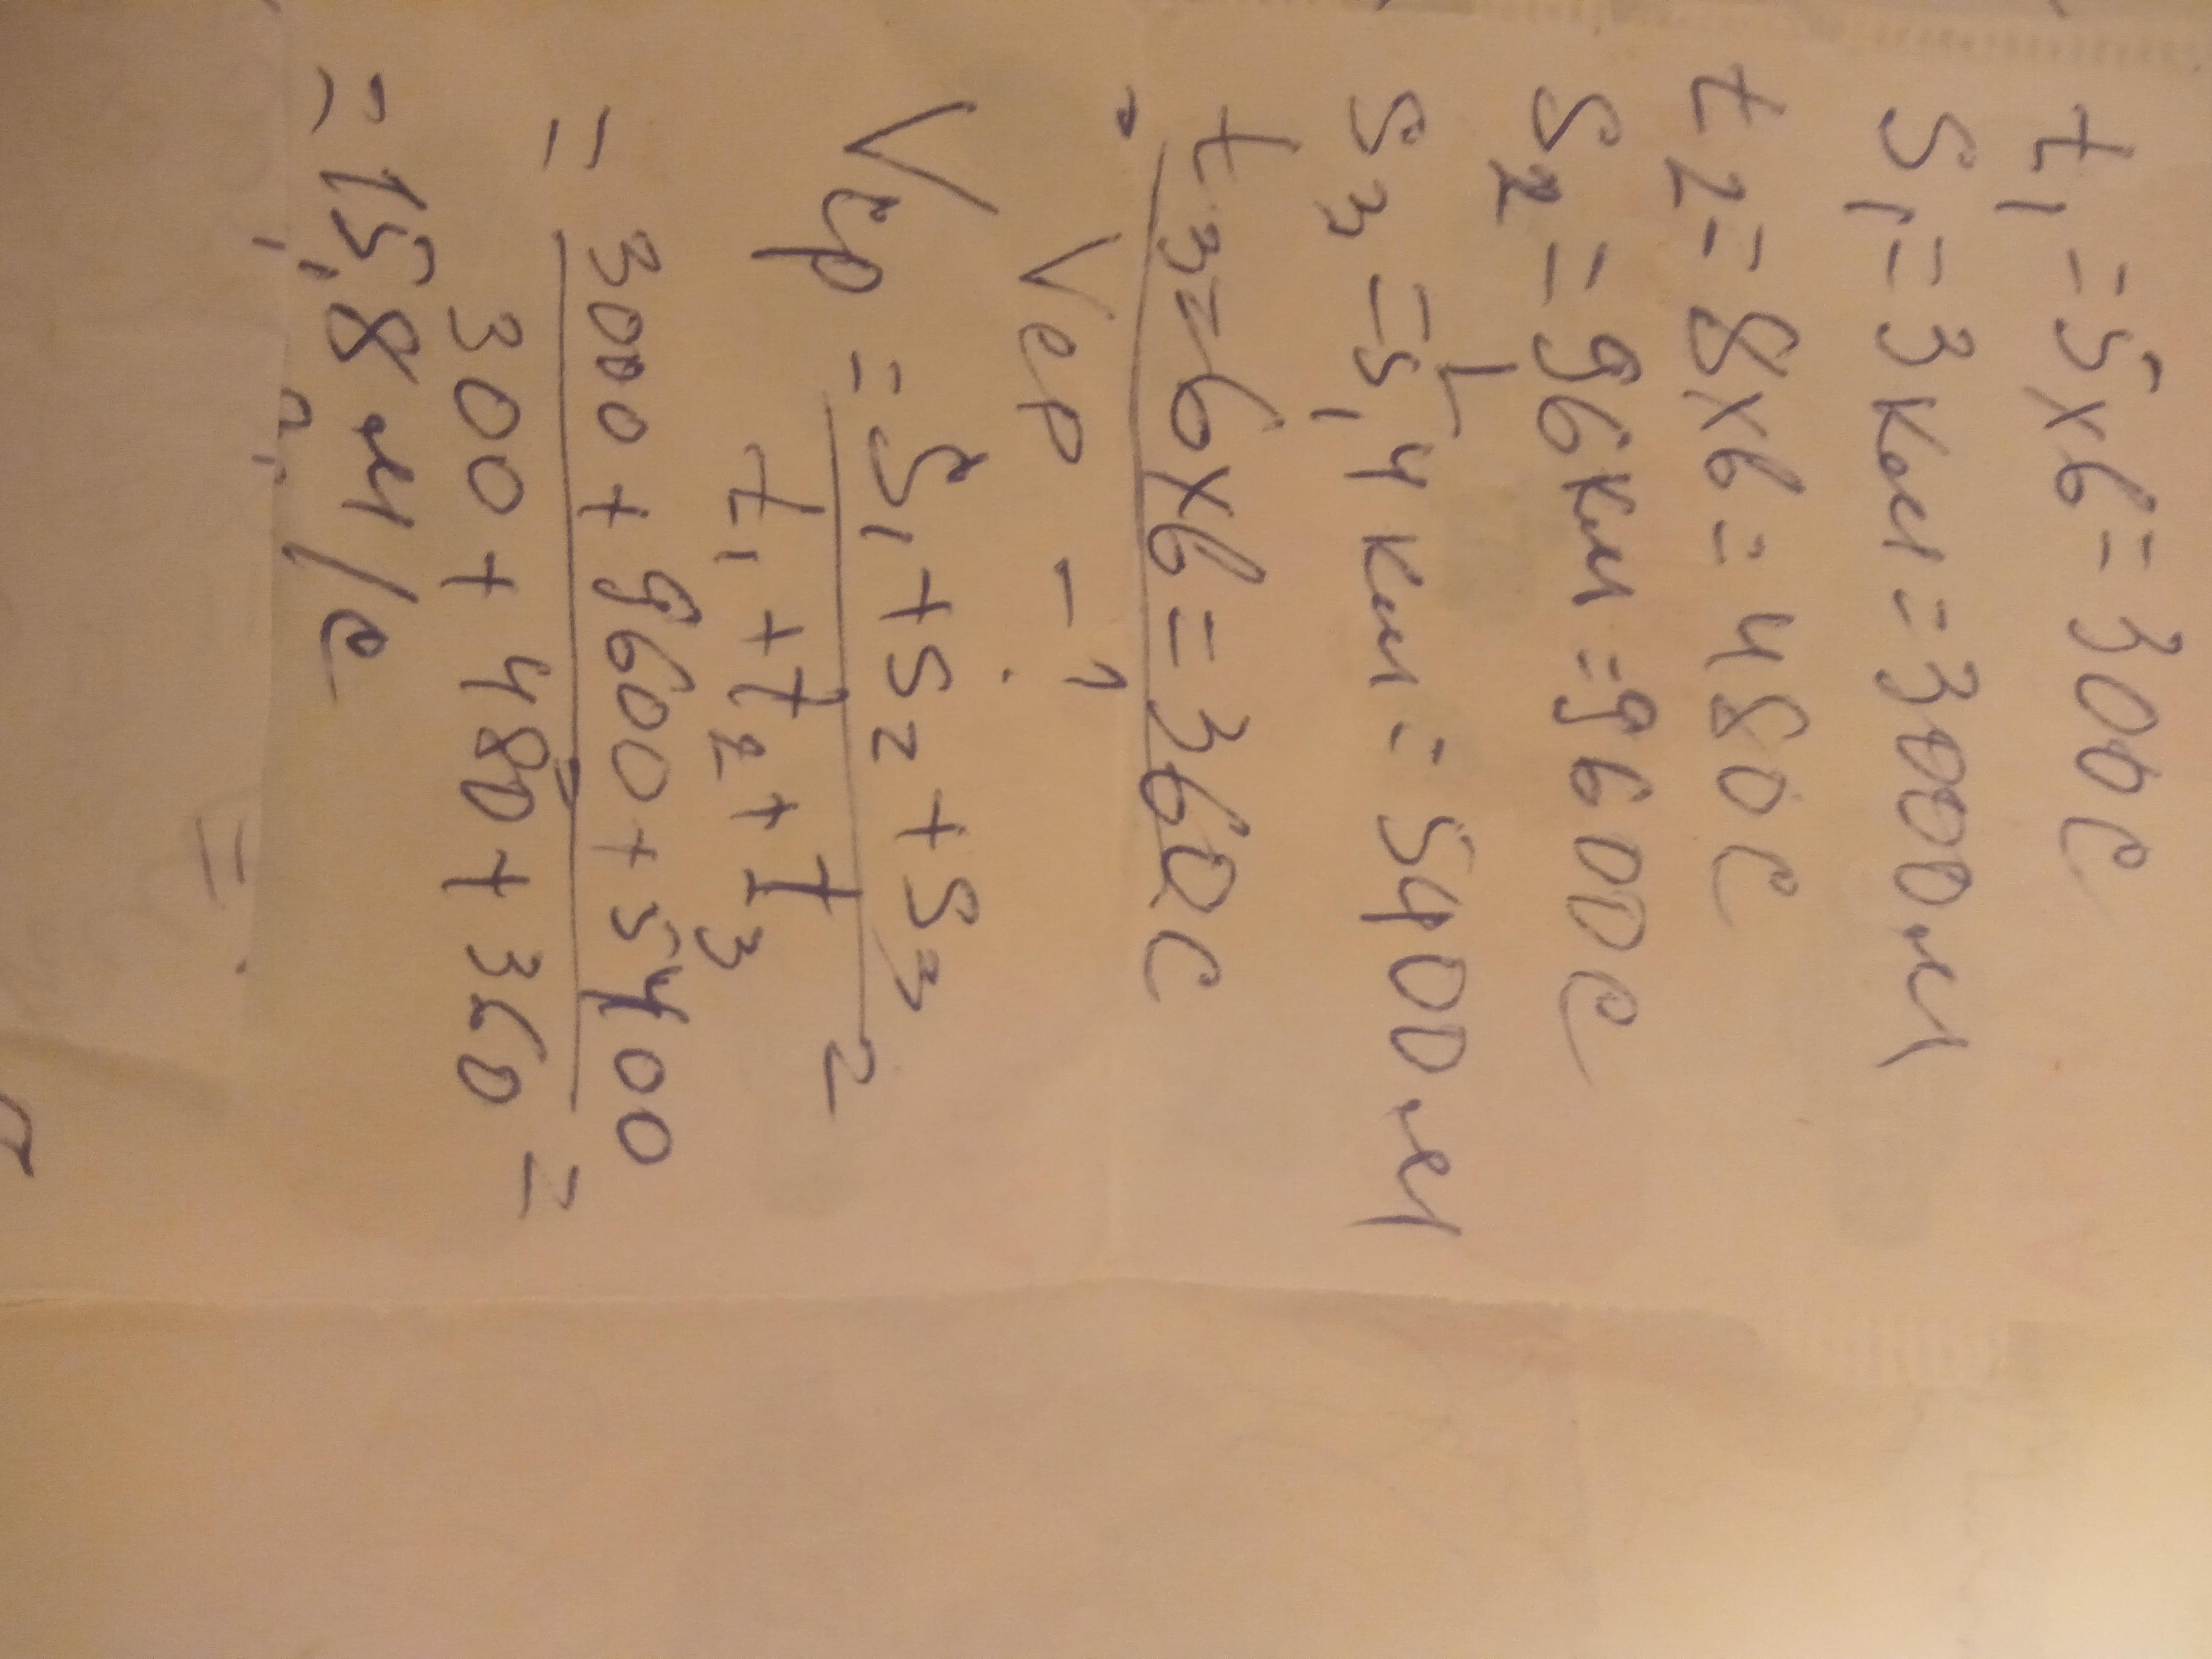 t₁ = 5х6 = 300 с
S₁ = 3 км = 3000 м
t₂ = 8х6 = 480 с
S₂ = 96 км = 9600 с
S₃ = 5,4 км = 5400 м
t₃ = 6х6 = 360 с
Vср - ?
Vср = S₁ + S₂ + S₃
t₁ + t₂ + t₃ =
= 3000 + 9600 + 5400
300 + 480 + 360 =
= 15,8 м/с